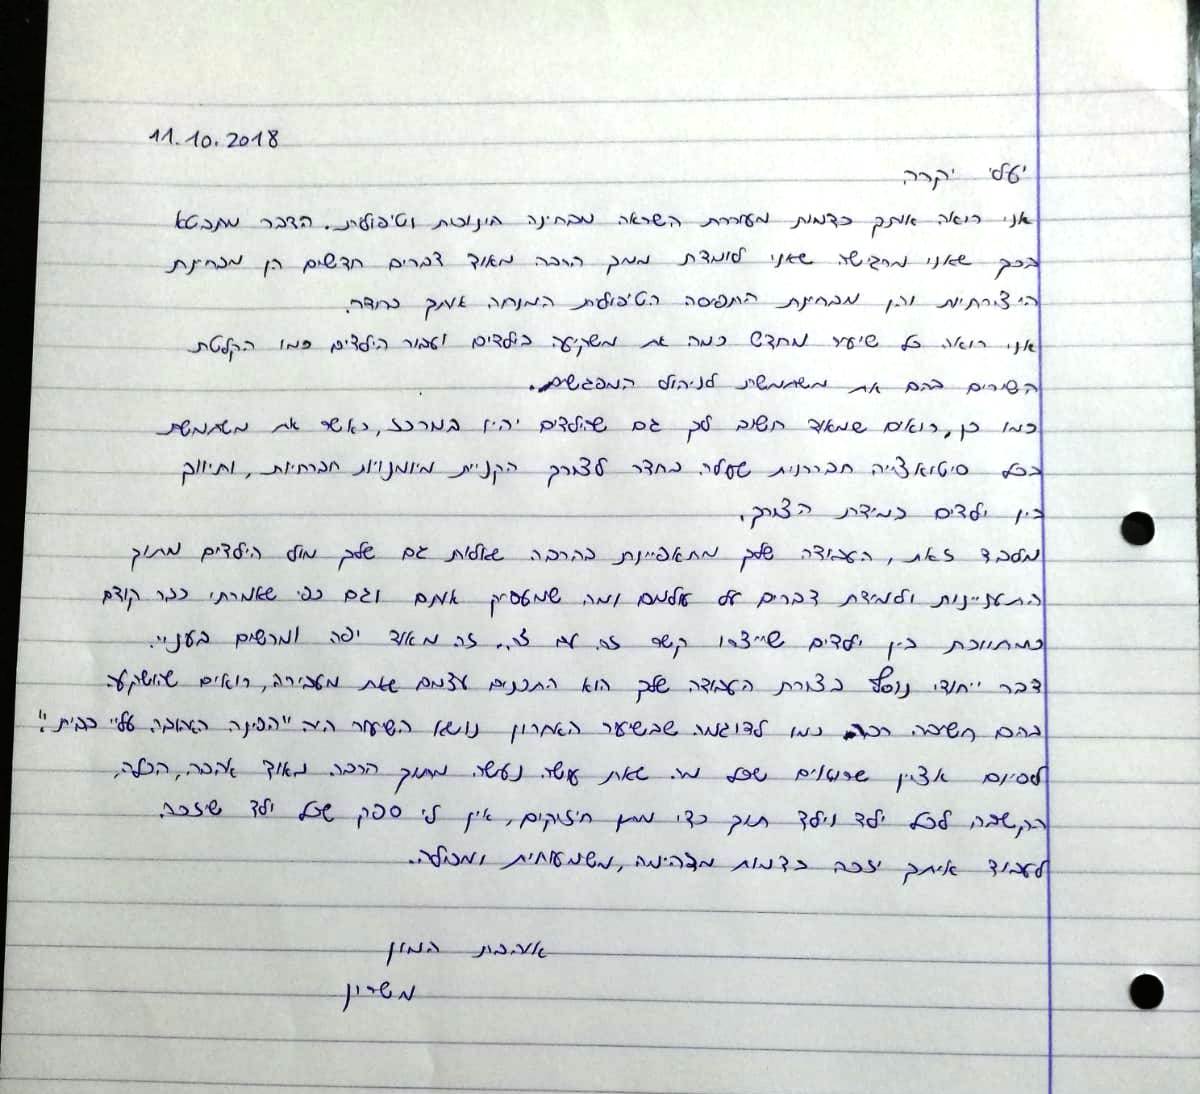 11.10.2018
יעלי יקרה
אני רואה אותך כדמות מעוררת השראה מבחינה חינוכית וטיפולית. הדבר מתבטא
בכך שאני מרגישה שאני לומדת ממך הרבה מאוד דברים חדשים הן מבחינת
היצירתיות והן מבחינת התפיסה הטיפולית המנחה אותך בחדר.
אני רואה כל שיעור מחדש כמה את משקיעה בילדים ועבור הילדים כמו הקלטת
השירים בהם את משתמשת לניהול המפגשים.
כמו כן, רואים שמאוד חשוב לך גם שהילדים יהיו במרכז, כאשר את משתמשת
בכל סיטואציה חברתית שעולה בחדר לצורך הקניית מיומנויות חברתיות, ותיווך
בין ילדים במידת הצורך.
מלבד זאת, העבודה שלך מתאפיינת בהרבה שאלות גם שלך מול הילדים מתוך
התעניינות ולמידת דברים על עולמם ומה שמעסיק אותם וגם כפי שאמרתי כבר קודם
כמתווכת בין ילדים שייצרו קשר זה עם זה. זה מאוד יפה ומרשים בעיניי.
דבר ייחודי נוסף בצורת העבודה שלך הוא התכנים עצמם שאת מעבירה, רואים שהושקעה
בהם חשיבה רבה כמו לדוגמה שבשיעור האחרון נושא השיעור היה "הפינה האהובה עליי בבית".
לסיום אציין שרואים שכל מה שאת עושה נעשה מתוך הרבה מאוד אהבה, הכלה,
הקשבה לכל ילד וילד תוך כדי מתן חיזוקים, אין לי ספק שכל ילד שיזכה
לעבוד איתך יזכה בדמות מדהימה, משמעותית ומכילה.
אוהבת המון